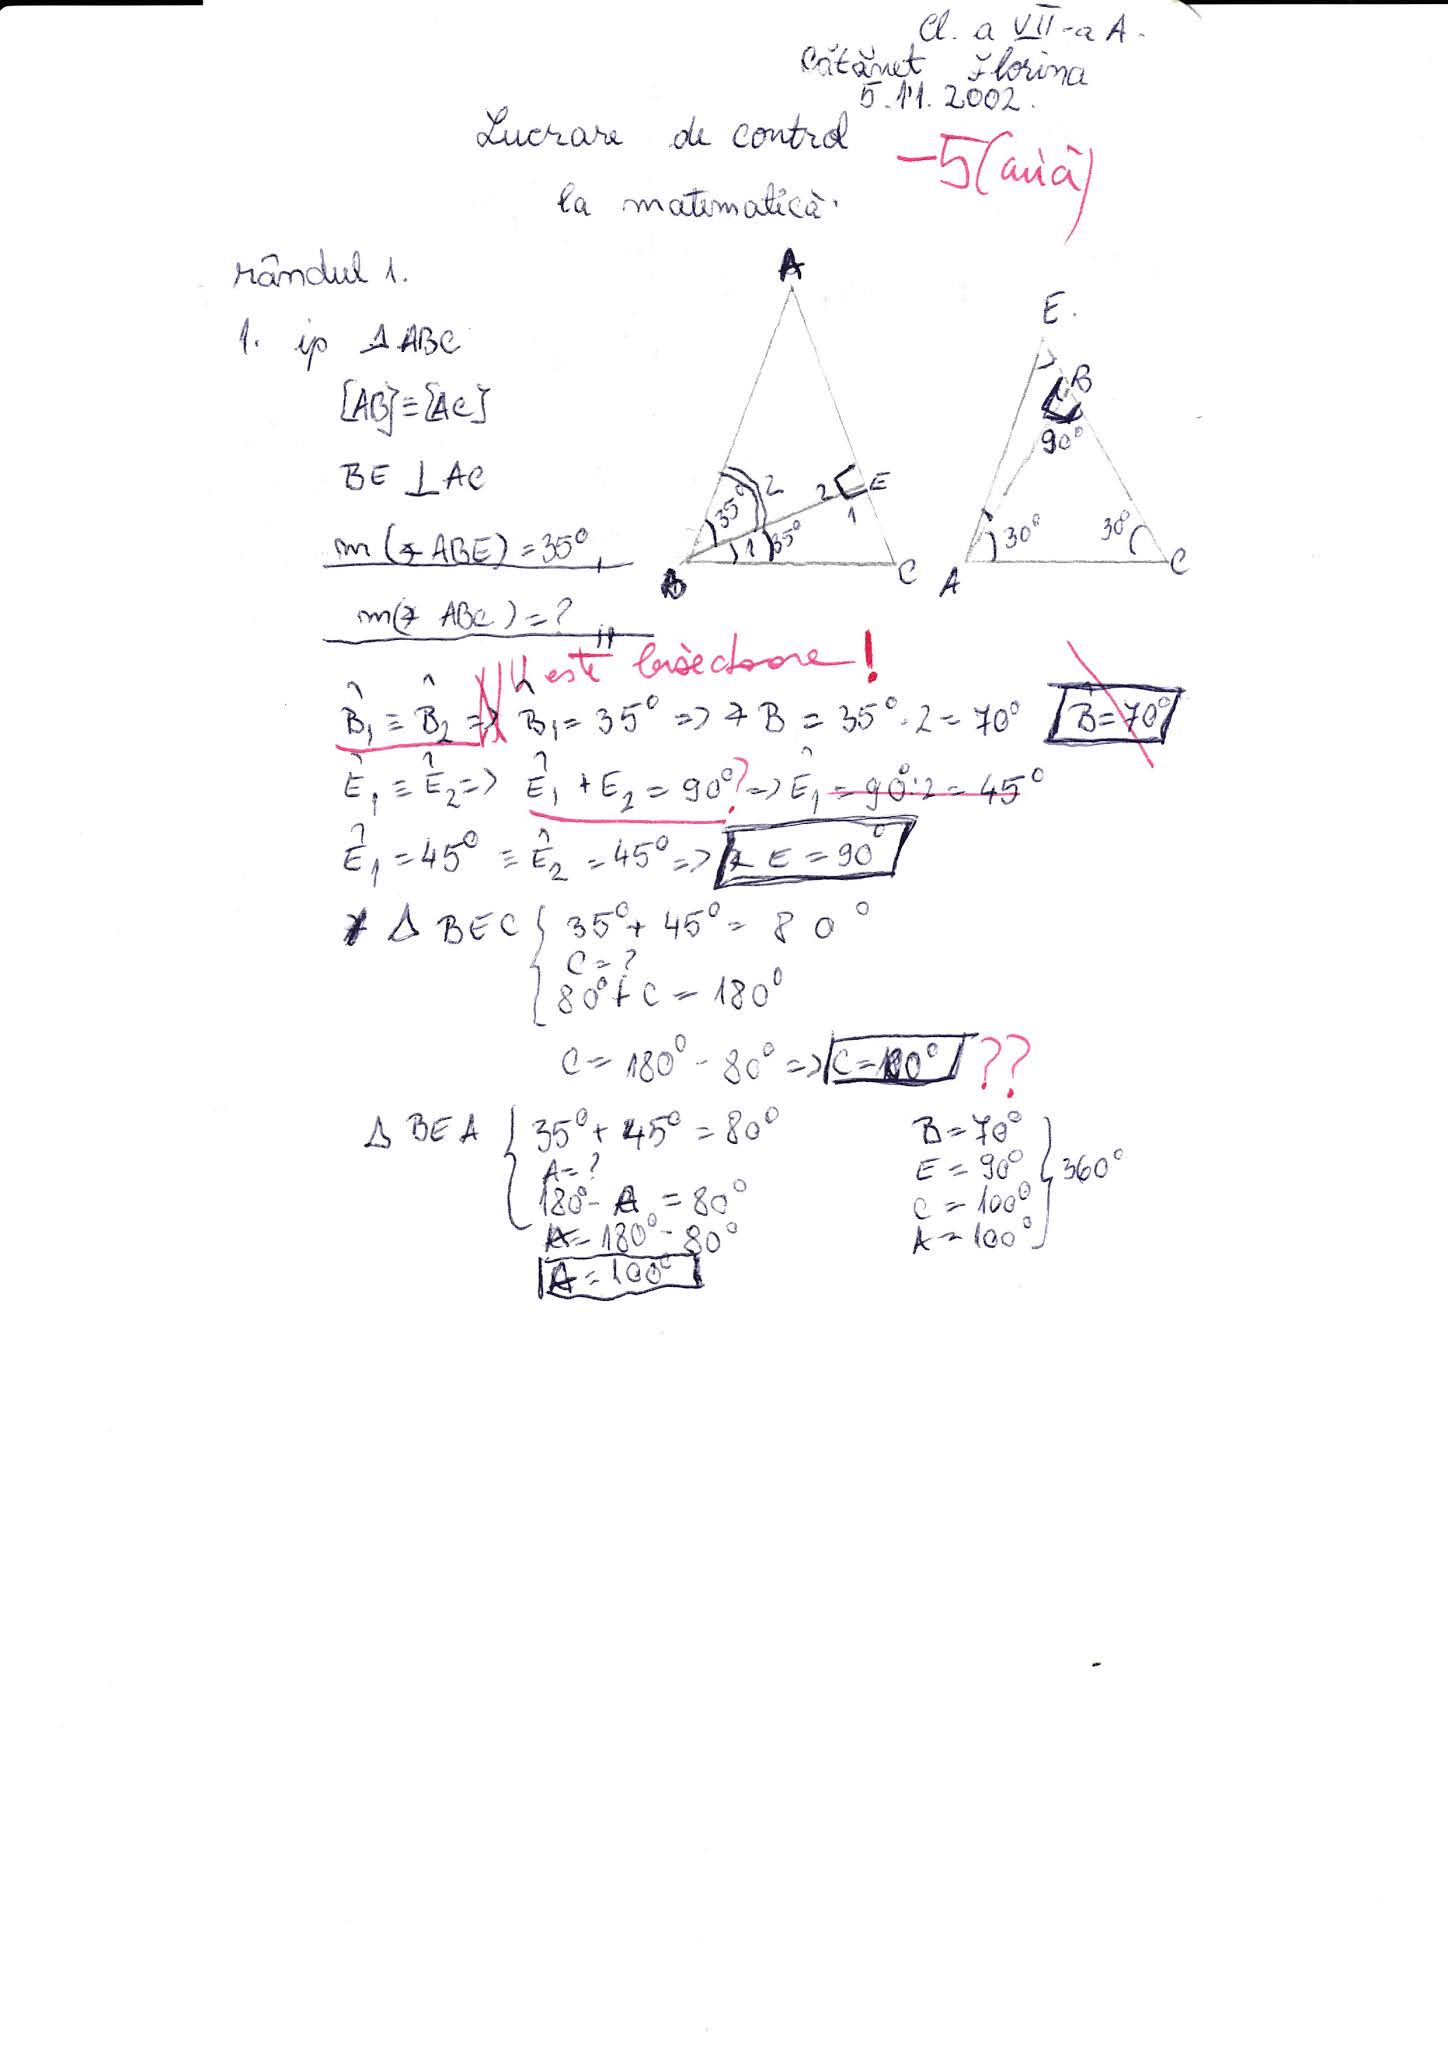 Cl. a VII-a A.
Cătăneț Florina
5.11.2002.
Lucrare de control
-5 (
la matematică.
rândul 1.
1. ip △ ABC
[AB]≡[AC]
BE ⊥ AC
m (∢ ABE) = 35°
m(∢ ABC) = ?
A
35° 2
2 E
1
1 35°
B C
E.
B
90°
30° 30°
A C
este bisectoare!
B̂₁ ≡ B̂₂ => B̂₁ = 35° => ∢ B = 35° · 2 = 70° B̂ = 70°
Ê₁ ≡ Ê₂ => Ê₁ + E₂ = 90° ? => Ê₁ = 90° : 2 = 45°
Ê₁ = 45° ≡ Ê₂ = 45° => ∢ E = 90°
△ BEC { 35° + 45° = 80°
C = ?
80° + C = 180°
C = 180° - 80° => C = 100° ??
△ BEA { 35° + 45° = 80°
A = ?
180° - A = 80°
A = 180° - 80°
A = 100°
B = 70°
E = 90° } 360°
C = 100°
A = 100°